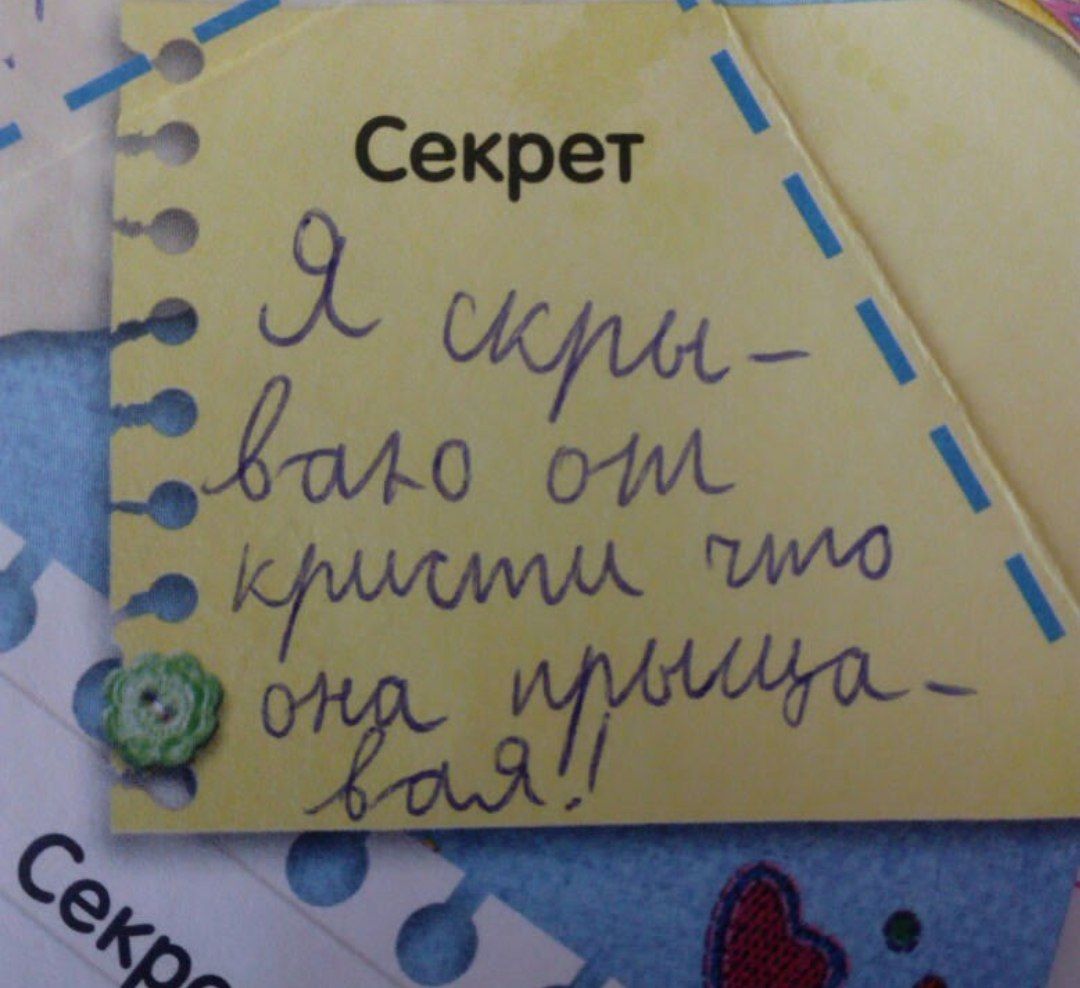 Секрет
Я скры-
ваю от
кристи что
она прыща-
вая!!
Секре